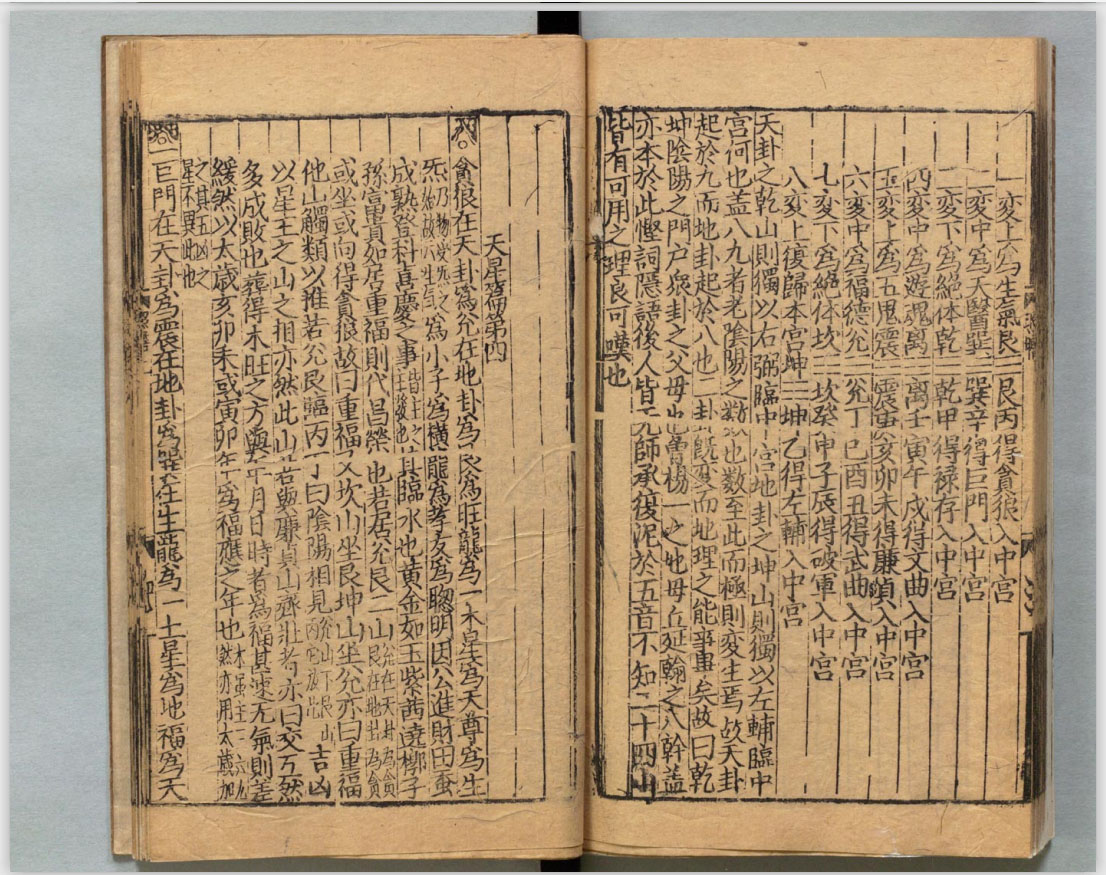 一変上為生氣艮 艮丙得貪狼入中宫
二変中為天醫巽 巽辛得巨門入中宫
三変下為絕体乾 乾甲得禄存入中宫
四変中為遊魂离 离壬寅午戌得文曲入中宫
五変上為五鬼震 震庚亥卯未得廉貞入中宫
六変中為福德兊 兊丁巳酉丑得武曲入中宫
七変下為絕体坎 坎癸申子辰得破軍入中宫
八変上復歸本宫坤 坤乙得左輔入中宫
天卦之乾山則獨以右弼臨中宫地卦之坤山則獨以左輔臨中
宫何也盖八九者老陰陽之數也数至此而極則変生焉故天卦
起於九而地卦起於八也二卦既変而地理之能事畢矣故曰乾
坤陰陽之門户衆卦之父母也曾楊一之地母丘延翰之八幹盖
亦本於此慳詞隱語後人皆无師承復泥於五音不知二十四山
皆有可用之理良可嘆也
天星篇第四
貪狼在天卦為兊在地卦為艮為旺龍為一木星為天尊為生
炁為小子為橫龍為孝友為聦明因公進財田蚕
成熟登科喜慶之事其臨水也黄金如玉紫茜遶槨子
孫富貴如居重福則代昌榮也若居兊艮二山
或坐或向得貪狼故曰重福又坎山坐艮坤山坐兊亦曰重福
他山觸類以推若兊艮臨丙丁曰陰陽相見吉凶
以星王之山之相亦然此山若與廉貞山齊壯者亦曰交互然
多成敗也葬得木旺之方與年月日時者為福其速无氣則差
緩然以太歳亥卯未或寅卯年為福應之年也
之其五凶之
星不異此也
一巨門在天卦為震在地卦為巽在生龍為一土星為地福為天